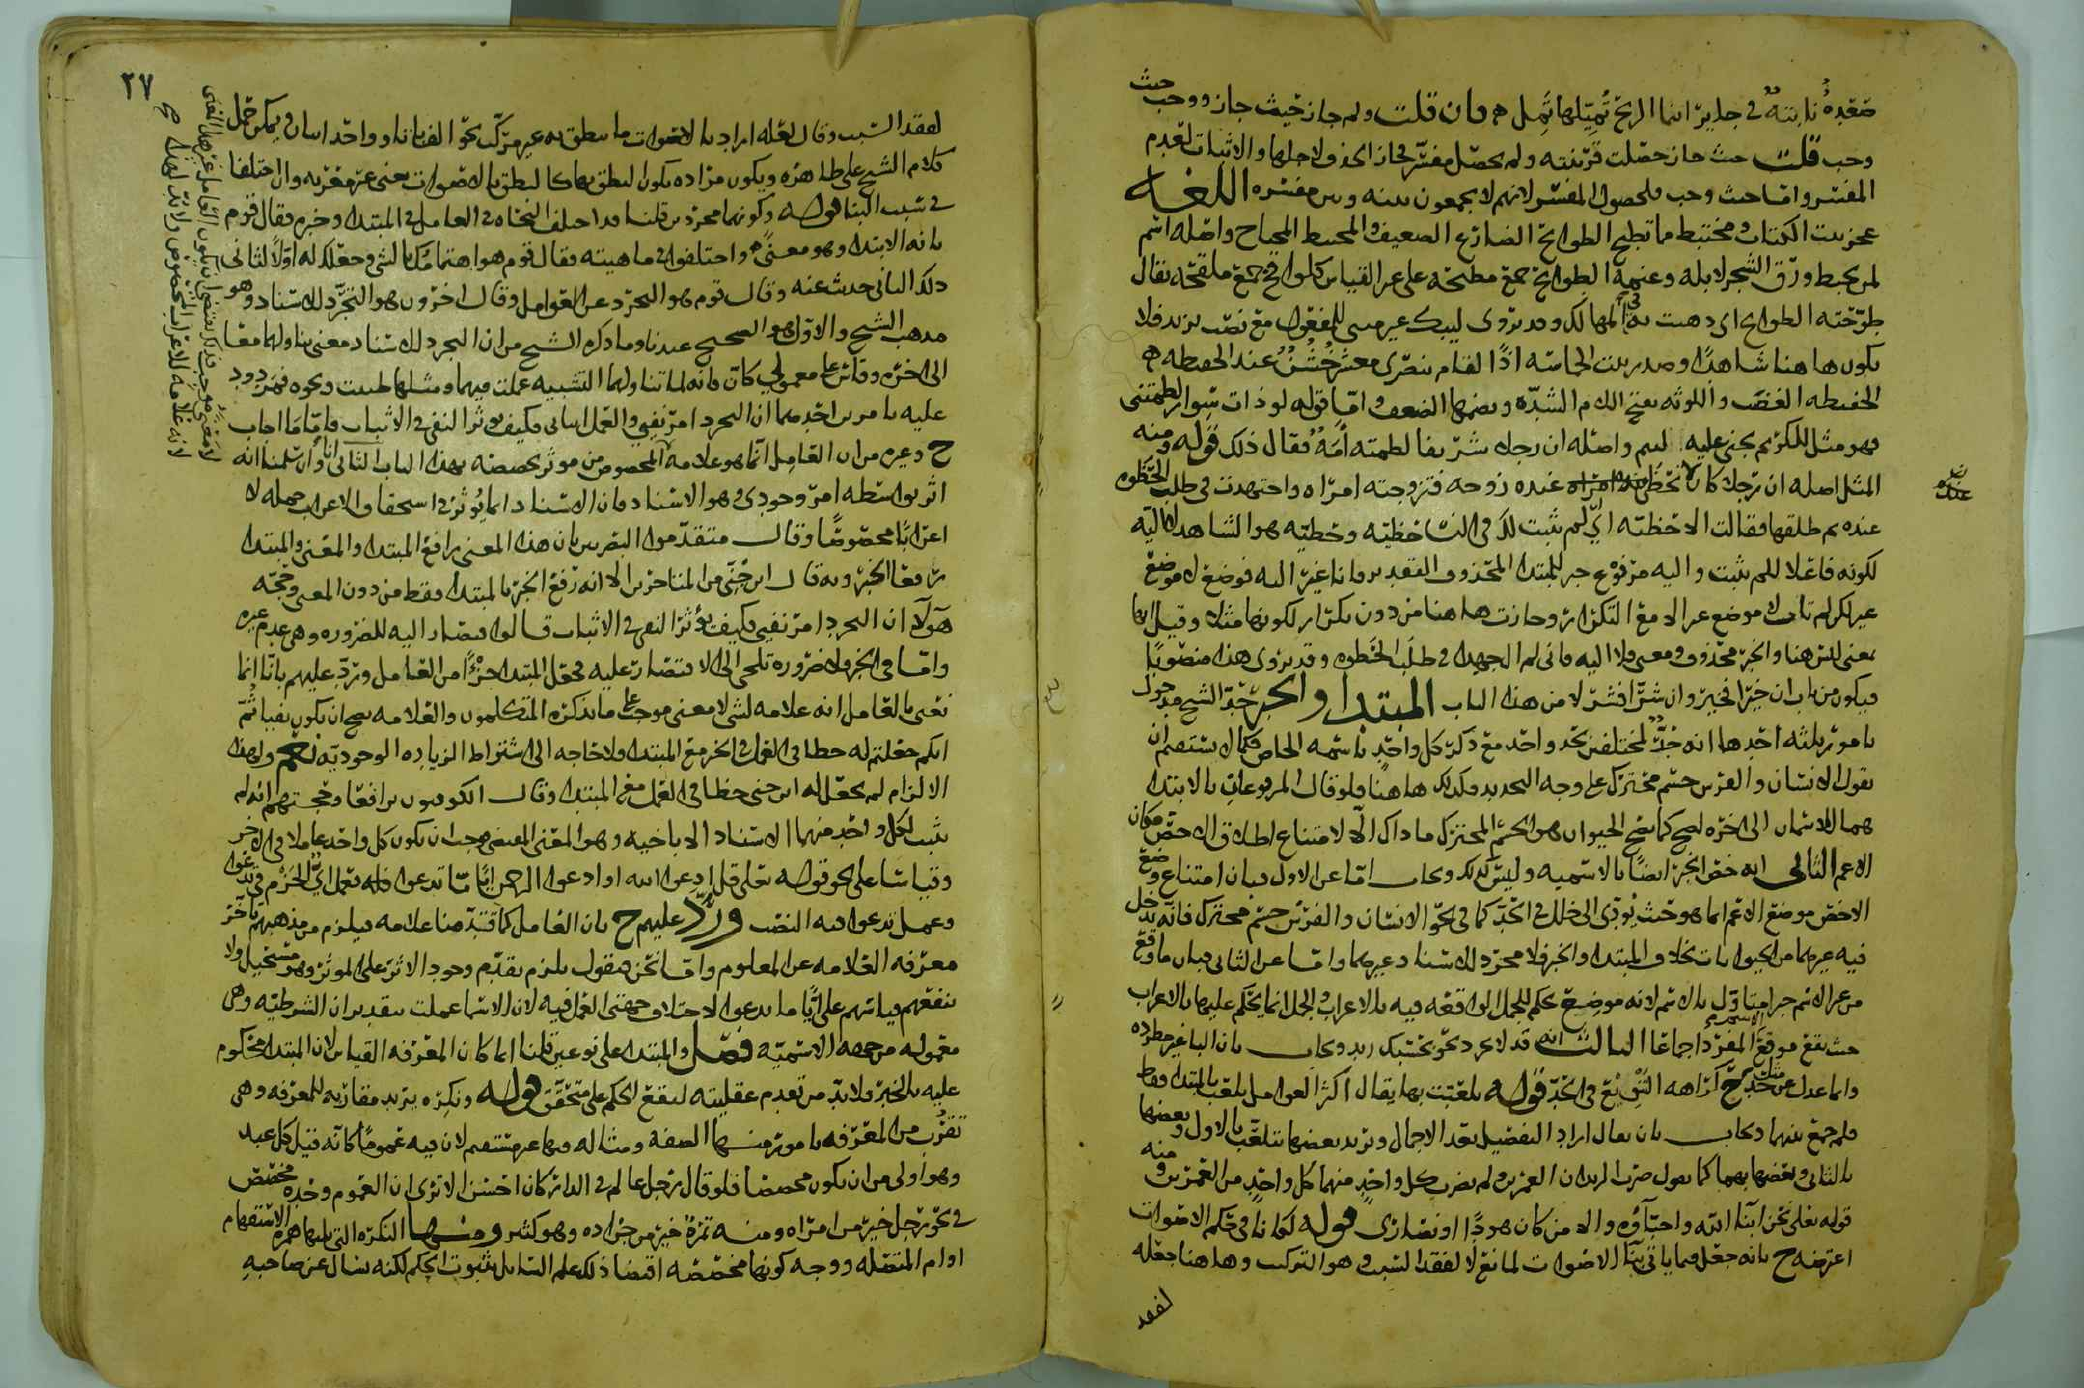 صعدة نابتة في حاير اينما الريح تميلها تمل فان قلت ولم جاز حيث جاز ووجب حيث
وجب قلت حيث جاز حصلت قرينته ولم يحصل مفسر فجاز الحذف لاجلها والاثبات لعدم
المفسر واما حيث وجب فلحصول المفسر لانهم لا يجمعون بينه وبين مفسره اللغه
عجز بيت الكتاب ومختبط مما تطيح الطوائح الضارع الضعيف والمختبط المحتاج واصله اسم
لمن يخبط ورق الشجر لابله وغنمه الطوائح جمع مطيحة على غير القياس كلواقح جمع ملقحة يقال
طوحته الطوائح اي ذهبت به في المهالك وقد يروى ليبك غير مبني للمفعول مع نصب يزيد فلا
يكون هاهنا شاهدا وصدر بيت الحماسة اذا لقام بنصري معشر خشن عند الحفيظه
الحفيظه الغضب واللوثه بفتح اللام الشدة وبضمها الضعف واما قوله لو ذات سوار لطمتني
فهو مثل للكريم يجني عليه اللئيم واصله ان رجلا شريفا لطمته أمة فقال ذلك قوله ومنه
المثل اصله ان رجلا كان لا تحظى عنده زوجه فتزوجته امراه واجتهدت في طلب الحظوه
عنده ثم طلقها فقالت الا حظيه اي لم يثبت لك في النساء حظيه وحظيه هو الشاهد
لكونه فاعلا للم يثبت واليه مرفوع خبر للمبتدا المحذوف التقدير فانا غير اليه فوضع لا موضع
غير لكن لم تات لا موضع غير الا مع التكرار وجازت هاهنا من دون تكرار لكونها مثلا وقيل انها
بمعنى ليس هنا والخبر محذوف ومعنى لا اليه فاني لم ال جهدا في طلب الحظوه وقد يروى هذا منصوبا
فيكون من باب ان خيرا فخير وان شرا فشر لا من هذا الباب المبتدا والخبر حد الشيخ مدخول
بامور ثلثه احدها انه حد لمختلفين بحد واحد مع ذكر كل واحد باسمه الخاص فكما لا يستقيم ان
يقول الانسان والفرس جسم محترك على وجه التحديد فكذلك هاهنا فلو قال المرفوعات بالابتدا
هما الاسمان الى اخره لصح كما يصح الحيوان هو الجسم المحترك ما ذاك الا لامتناع اطلاق الاخص مكان
الاعم الثاني انه خص الخبر ايضا بالاسميه وليس كذلك ويجاب اما عن الاول فبان امتناع وضع
الاخص موضع الاعم انما هو حيث يؤدي الى خلل في الحد كما في نحو الانسان والفرس جسم محترك فانه يدخل
فيه غيرهما من الحيوانات بخلاف المبتدا والخبر فلا مجرد للاسناد غيرهما واما عن الثاني فبان ما وقع
من غير الاسم خبرا متاول بالاسم لانه موضع حكم للجمل الواقعه فيه بالاعراب والجمل انما يحكم عليها بالاعراب
حيث تقع موقع المفرد اجماعا الثالث انه قد لا يجرد نحو بحسبك زيد ويجاب بان البا غير مطرده
وانما عدل عن حد كراهه التنويع في الحد قوله تلعبت بها يقال اكثر العوامل تلعب بالمبتدا فقط
فلم جمع بينهما ويجاب بان يقال اراد التفصيل بعد الاجمال ويريد بعضها تتلعب بالاول وبعضها
بالثاني وبعضها بهما كما يقول ضرب الزيدان العمرين ولم يضرب كل واحد منهما كل واحد من العمرين ومنه
قوله تعلى نحن ابناء الله واحباؤه والا من كان هودا او نصارى قوله لكانا في حكم الاصوات
اعترضه ح بانه جعل فيما ياتي بنا الاصوات لمانع لا لفقد السبب وهو التركيب وهاهنا جعله
لفقد
٢٧
لفقد السبب وقال لعله اراد بالاصوات ما ينطق به غير مركب نحو الف با تا ثا او واحد اثنان ويمكن حمل
كلام الشيخ على ظاهره ويكون مراده يكون لينطق بها كما لينطق بالاصوات يعني غير معربه وان اختلفا
في سبب البنا قوله وكونهما مجردين قلنا قد اختلف النحاه في العامل في المبتدا وخبره فقال قوم
بانه الابتدا وهو معنى واختلفوا في ماهيته فقال قوم هو اهتمامك بالشي وجعلك له اولا لثاني
ذلك الثاني حديث عنه وقال قوم هو التجرد عن العوامل وقال اخرون هو التجرد للاسناد وهو
مذهب الشيخ والاول هو الصحيح عندنا وما ذكره الشيخ من ان التجرد للاسناد معنى يتناولهما معا
الى اخره وقاس على معمولي كان فانه لما تناولهما التشبيه عملت فيهما ومثلها ظننت ونحوه فمردود
عليه بامرين احدهما ان التجرد امر نفيي والعمل اثباتي فكيف يوثر النفي في الاثبات فاما ما اجاب
ح وغيره من ان العامل انما هو علامة لا المخصوص من موثر يخصصه بهذا الباب الثاني انا وان سلمنا انه
اثر بواسطه امر وجودي هو الاسناد فان الاسناد انما يؤثر في استحقاق الاعراب جمله لا
اعرابا مخصوصا وقال متقدموا البصريين بان هذا المعنى رافع المبتدا والمعنى والمبتدا
رافعا الخبر وبه قال ابن جني من المتاخرين الا انه رفع الخبر بالمبتدا فقط من دون المعنى وحجة
هؤلاء ان التجرد امر نفيي فكيف يؤثر النفي في الاثبات قالوا فصار اليه للضروره وهي عدم غيره
واما في الخبر فلا ضروره تلجي الى الاقتصار عليه فجعل المبتدا جزءا من العامل ويرد عليهم بانا انما
نعني بالعامل انه علامه لشي لا معنى موجب على ما يذكره المتكلمون والعلامه يصح ان يكون نفيا ثم
انكم جعلتم له حظا في العمل في الخبر مع المبتدا فلا حاجه الى اشتراط الزياده الوجوديه نعم ولهذا
الالزام لم يجعل له ابن جني حظا في العمل مع المبتدا وقال الكوفيون ترافعا وحجتهم انه لم
يثبت لكل واحد منهما الاسناد الا باخيه وهو المعنى المقتضي فوجب ان يكون كل واحد عاملا في الاخر
وقياسا على نحو قوله تعلى قل ادعوا الله او ادعوا الرحمن ايا ما تدعوا فانه تعمل اي الجزم في تدعوا
وعمل تدعوا فيه النصب ورد عليهم ح بان العامل كما قدمنا علامه فيلزم من مذهبهم تاخر
معرفه العلامه عن المعلوم واما نحن فنقول يلزم تقدم وجود الاثر على الموثر وهو مستحيل ولا
ينفعهم قياسهم على ايا ما تدعوا لاختلاف جهتي العمل فيه لان الاسما عملت بتقدير ان الشرطيه وهي
معموله من جهه الاسميه فصل والمبتدا على نوعين قلنا انما كان المعرفه القياس لان المبتدا محكوم
عليه بالخبر فلا بد من تقدم عقليته ليقع الحكم على متحقق قوله ونكره يريد مقاربه للمعرفه وهي
تقرب من المعرفه بامور منها الصفه ومثاله فيها غير مستقيم لان فيه عموما كانه قيل كل عبد
وهو اولى من ان يكون مخصصا فلو قال رجل عالم في الدار كان احسن الا ترى ان العموم وحده مخصص
في نحو رجل خير من امراه ومنه تمرة خير من جراده وهو كثير ومنها النكره التي يليها همزه الاستفهام
او ام المتصله ووجه كونها مخصصه اقتضا ذلك علم السائل بثبوت الحكم لكنه يسال عن صاحبه